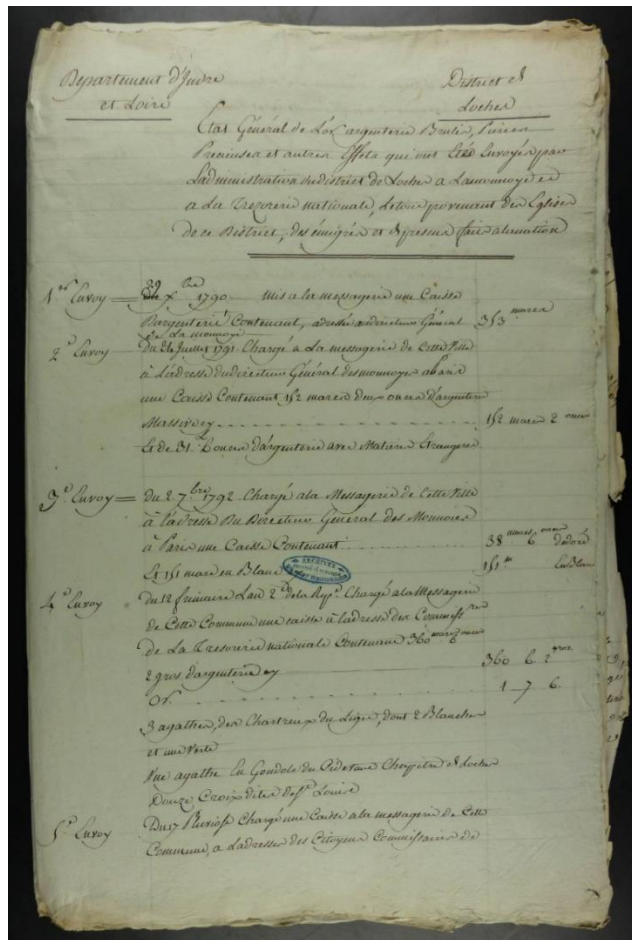 Département d'Indre
et Loire
District de
Loches
Etat Général de L'or, argenterie Brulés, Pierres
Precieuses et autres Effets qui ont Eté Envoyés par
L'administration du district de Loches a La monnoye et
a La Tresorerie nationale, Le tout provenant des Eglises
de ce District, des émigrés et de
1er Envoy = 29 Xbre 1790 mis a la messagerie une Caisse
D'argenterie Contenant, adressée au directeur Général 313 marcs
de La monnoye
2e Envoy Du 21 Juillet 1791 Chargé a La messagerie de Cette Ville
à L'adresse du directeur Général des monnoyes a Paris
une Caisse Contenant 152 marcs deux onces d'argenterie
Massive cy 152 marcs 2 onces
Et de 31 onces d'argenterie avec Matiere Etrangere
3e Envoy = Du 2 7bre 1792 Chargé a la Messagerie de Cette Ville
à l'adresse Du Directeur Général des Monnoies
à Paris une Caisse Contenant 38 marcs 6 onces de doré
Et 151 marc en Blanc 151 m En Blanc
ARCHIVES
4e Envoy du 12 frimaire L'an 2e de la Repe Chargé a la Messagerie
de Cette Commune une caisse à l'adresse des Commissres
de La Tresorerie nationale Contenant 360 marcs 6 onces
2 gros d'argenterie cy 360 6 2 gros
Or 1 7 6
3 agathes, des Chartreux du Liget, dont 2 Blanches
et une Verte
Une agathe En Gondole du Chapitre de Loches
Douze Croix dites de St Louis
5e Envoy Du 17 Pluviose Chargé une Caisse a la messagerie de Cette
Commune, a L'adresse des Citoyens Commissaires de